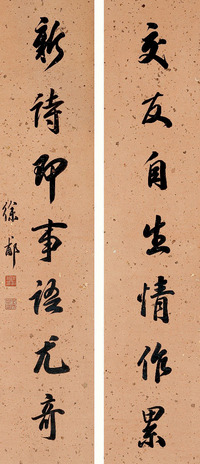 交友自生情作累
新诗即事语尤奇
徐郙